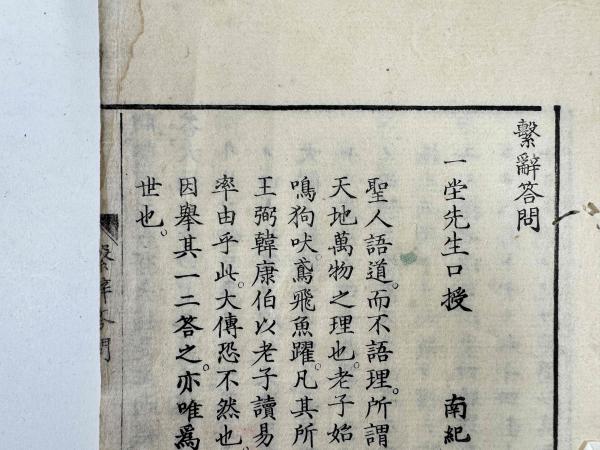 繫辭答問
一堂先生口授 南紀
聖人語道。而不語理。所謂
天地萬物之理也。老子始
鳴狗吠。鳶飛魚躍。凡其所
王弼韓康伯以老子讀易
率由乎此。大傳恐不然也。
因舉其一二答之。亦唯爲
世也。
繫辭答問